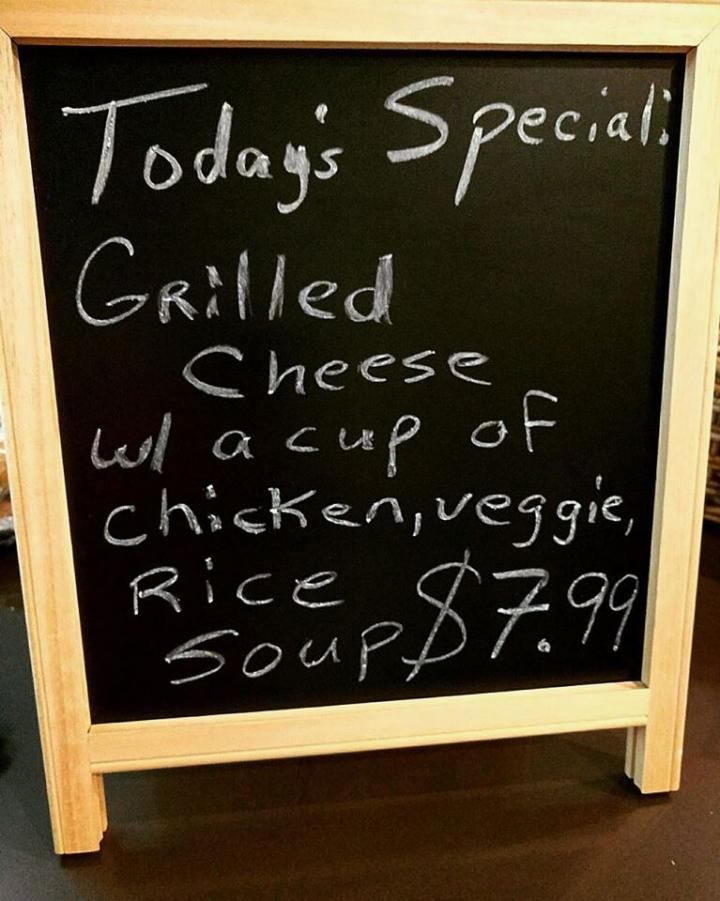 Today's Special:
Grilled
Cheese
w/ a cup of
chicken, veggie,
Rice
Soup $7.99